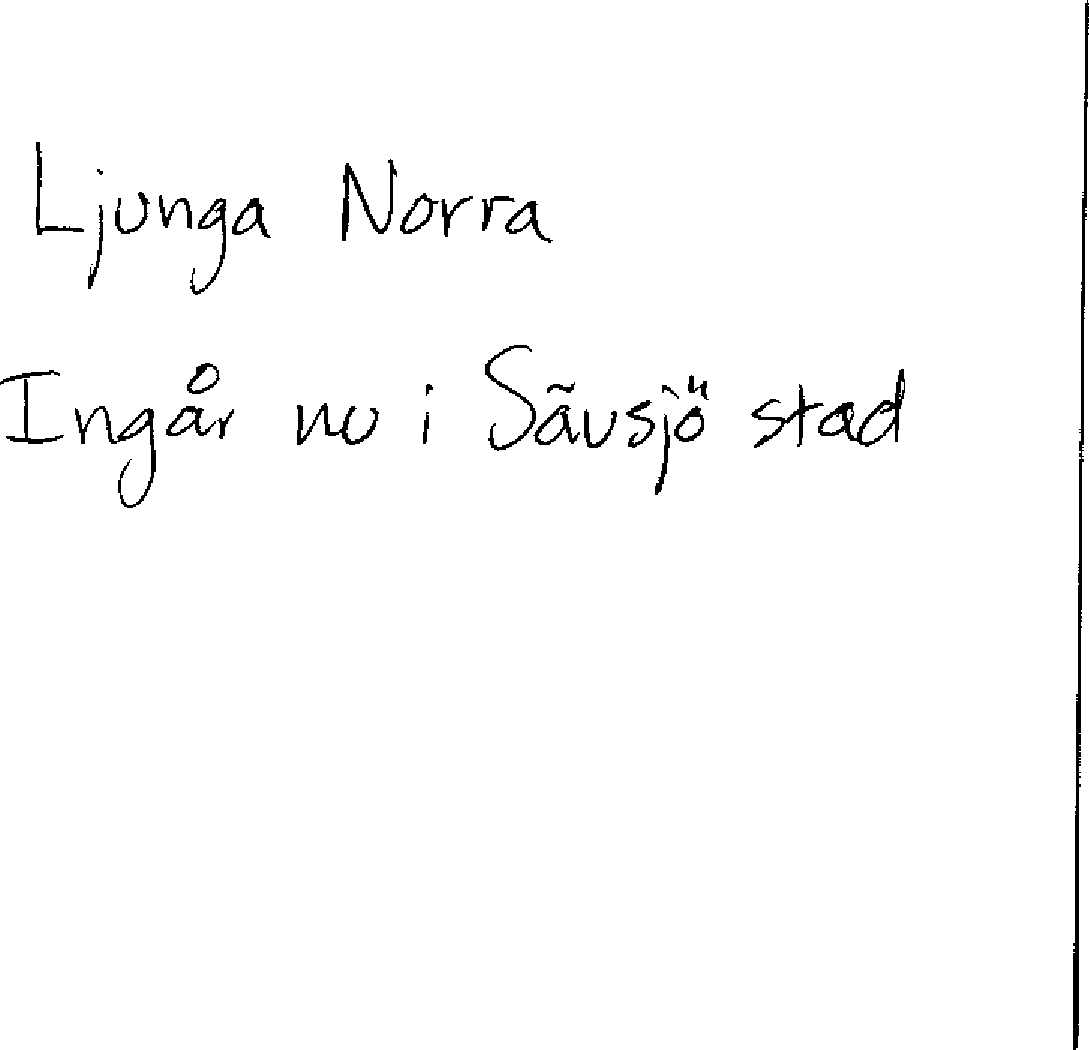 Ljunga Norra
Ingår nu i Sävsjö stad